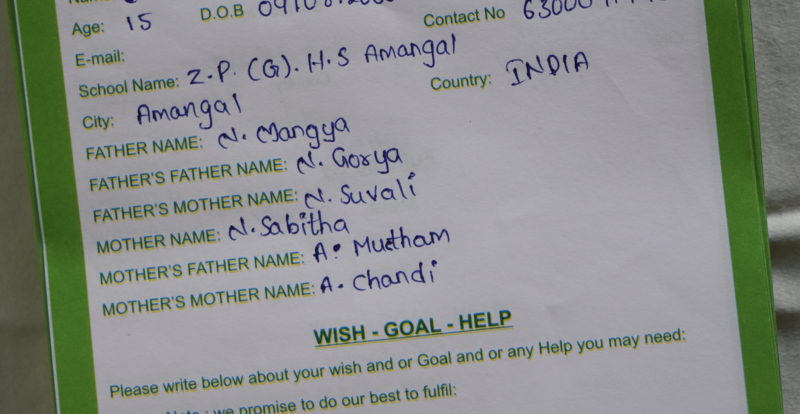 Age: 15 D.O.B Contact No
E-mail:
School Name: Z.P. (G). H.S Amangal
City: Amangal Country: INDIA
FATHER NAME: N. Mangya
FATHER'S FATHER NAME: N. Gorya
FATHER'S MOTHER NAME: N. Suvali
MOTHER NAME: N. Sabitha
MOTHER'S FATHER NAME: A. Mutham
MOTHER'S MOTHER NAME: A. Chandi
WISH - GOAL - HELP
Please write below about your wish and or Goal and or any Help you may need:
Note : we promise to do our best to fulfil: